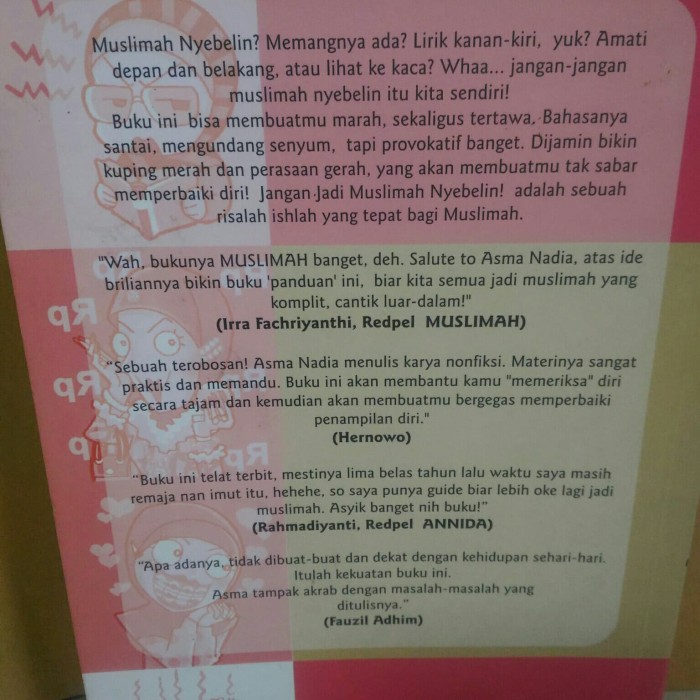 Muslimah Nyebelin? Memangnya ada? Lirik kanan-kiri, yuk? Amati
depan dan belakang, atau lihat ke kaca? Whaa... jangan-jangan
muslimah nyebelin itu kita sendiri!
Buku ini bisa membuatmu marah, sekaligus tertawa. Bahasanya
santai, mengundang senyum, tapi provokatif banget. Dijamin bikin
kuping merah dan perasaan gerah, yang akan membuatmu tak sabar
memperbaiki diri! Jangan Jadi Muslimah Nyebelin! adalah sebuah
risalah ishlah yang tepat bagi Muslimah.
"Wah, bukunya MUSLIMAH banget, deh. Salute to Asma Nadia, atas ide
briliannya bikin buku 'panduan' ini, biar kita semua jadi muslimah yang
komplit, cantik luar-dalam!"
(Irra Fachriyanthi, Redpel MUSLIMAH)
"Sebuah terobosan! Asma Nadia menulis karya nonfiksi. Materinya sangat
praktis dan memandu. Buku ini akan membantu kamu "memeriksa" diri
secara tajam dan kemudian akan membuatmu bergegas memperbaiki
penampilan diri."
(Hernowo)
"Buku ini telat terbit, mestinya lima belas tahun lalu waktu saya masih
remaja nan imut itu, hehehe, so saya punya guide biar lebih oke lagi jadi
muslimah. Asyik banget nih buku!"
(Rahmadiyanti, Redpel ANNIDA)
"Apa adanya, tidak dibuat-buat dan dekat dengan kehidupan sehari-hari.
Itulah kekuatan buku ini.
Asma tampak akrab dengan masalah-masalah yang
ditulisnya."
(Fauzil Adhim)
Rp
Rp
Rp
Rp